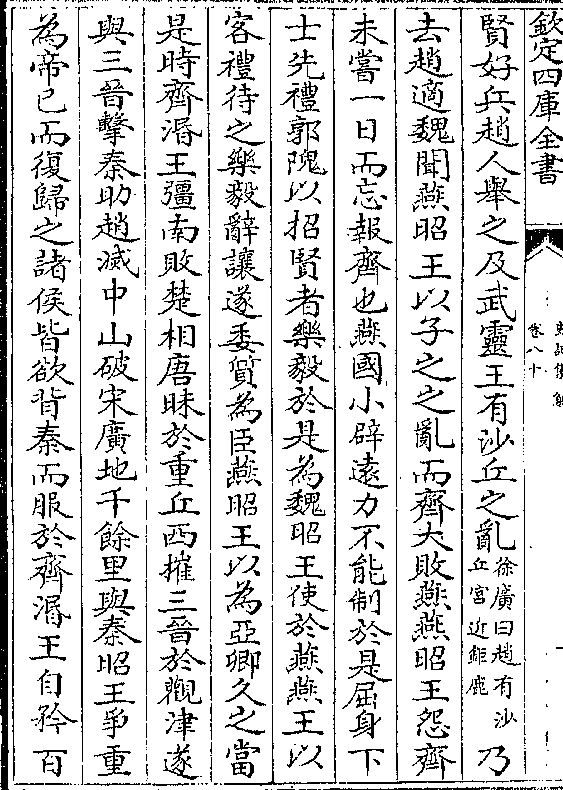 欽定四庫全書
史記集解
卷八十
賢好兵趙人舉之及武靈王有沙丘之亂徐廣曰趙有沙丘宮近鉅鹿乃
去趙適魏聞燕昭王以子之之亂而齊大敗燕燕昭王怨齊
未嘗一日而忘報齊也燕國小辟遠力不能制於是屈身下
士先禮郭隗以招賢者樂毅於是為魏昭王使於燕燕王以
客禮待之樂毅辭讓遂委質為臣燕昭王以為亞卿久之當
是時齊湣王彊南敗楚相唐眛於重丘西摧三晉於觀津遂
與三晉擊秦助趙滅中山破宋廣地千餘里與秦昭王爭重
為帝已而復歸之諸侯皆欲背秦而服於齊湣王自矜百